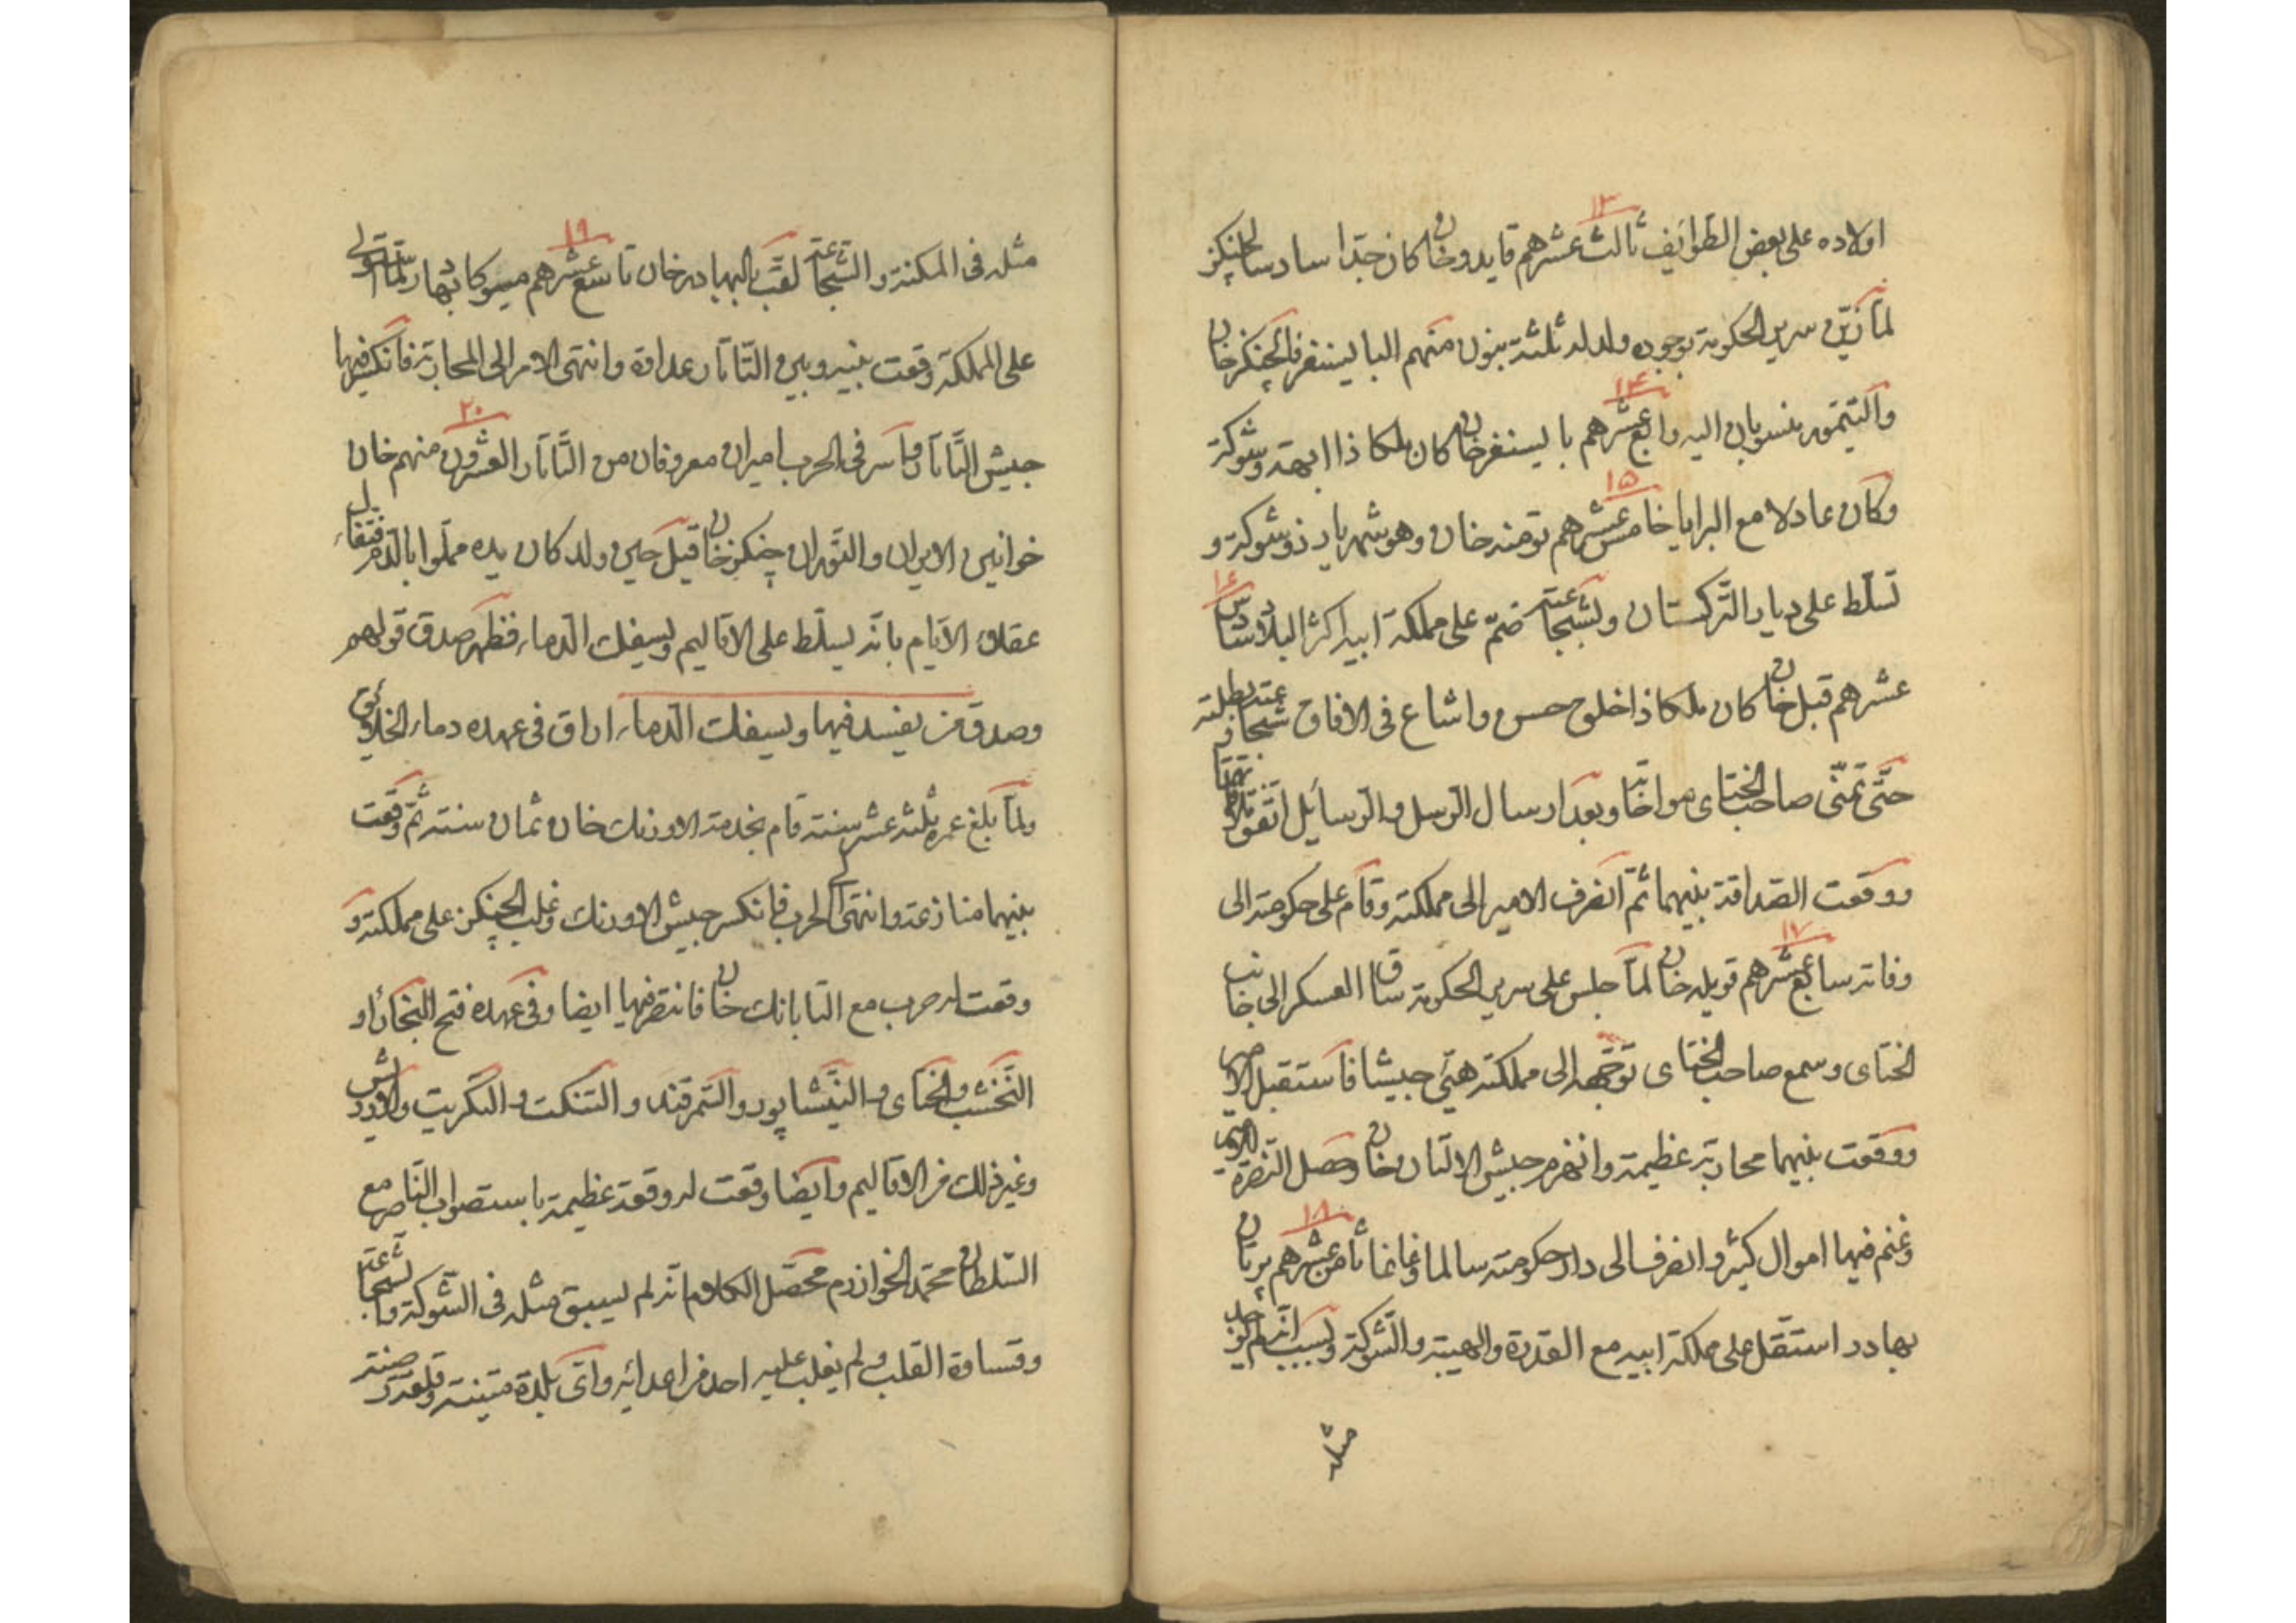 ١٣
اولاده على بعض الطوايف ثالث عشرهم قايدو خان كان جدا سادسا لچنكز
لما زين سرير الحكومة بوجوده ولد له ثلثة بنون منهم البايسنغر فالچنكز خان
١٤
والتيمور منسوبان اليه رابع عشرهم بايسنغر خان كان ملكا ذا ابهة وشوكة
١٥
وكان عادلا مع البرايا خامس عشرهم تومنه خان وهو شهريار ذو شوكة و
١٦
تسلط على ديار التركستان وبشجاعته ضم على مملكة ابيه اكثر البلاد سادس
عشرهم قبل خان كان ملكا ذا خلوح حسن واشاع في الافاق شجاعته وبطلته
حتى تمنى صاحب الختاى مواخاتا وبعد ارسال الرسل والرسايل اتفق
ووقعت الصداقة بينهما ثم انصرف الامير الى مملكته وقام على حكومته الى
١٧
وفاته سابع عشرهم قويله خان لما جلس على سرير الحكومة ساق العسكر الى جانب
الختاى وسمع صاحب الختاى توجهه الى مملكته هيئ جيشا فاستقبل الامير
ووقعت بينهما محاربة عظيمة وانهزم جيش الالتان خان وحصل النصرة للامير
١٨
وغنم فيها اموال كثير وانصرف الى دار حكومته سالما وغانما ثامن عشرهم برتان
بهادر استقل على مملكة ابيه مع القدرة والهيبة والشوكة وبسبب انه لم يوجد
مثله
١٩
مثله في المكنة والشجاعة لقب بالبهادر خان تاسع عشرهم ميسوكا بهادر لما استولى
على المملكة وقعت بينه وبين التاتار عداوة وانتهى الامر الى المحاربة فانكسر فيها
٢٠
جيش التاتار واسر في الحرب اميران معروفان من التاتار العشرون منهم خان
خوانين الايران والتوران چنكز خان قيل حين ولد كان يده مملوا بالدم فتفاءل
عقلاء الايام بانه يسلط على الاقاليم ويسفك الدماء فظهر صدق قولهم
وصدق من يفسد فيها ويسفك الدماء اراق في عهده دماء الخلائق
ولما بلغ عمره ثلثة عشر سنة قام بخدمة الاونك خان ثمان سنة ثم وقعت
بينهما منازعة وانتهى الى الحرب فانكسر جيش الاونك وغلب الچنكز على مملكته و
وقعت له حرب مع التايانك خان فانتصر فيها ايضا وفي عهده فتح البخارا و
النخشب والختاى والنيشاپور والسمرقند والتنكت والتكريت والاوروس
وغير ذلك من الاقاليم وايضا وقعت له وقعة عظيمة باستصواب الناصر مع
السلطان محمد الخوارزم محصل الكلام انه لم يسبق مثله في الشوكة والشجاعة
وقساوة القلب ولم يغلب عليه احد من اعدائه واتى بلدة متينة وقلعة